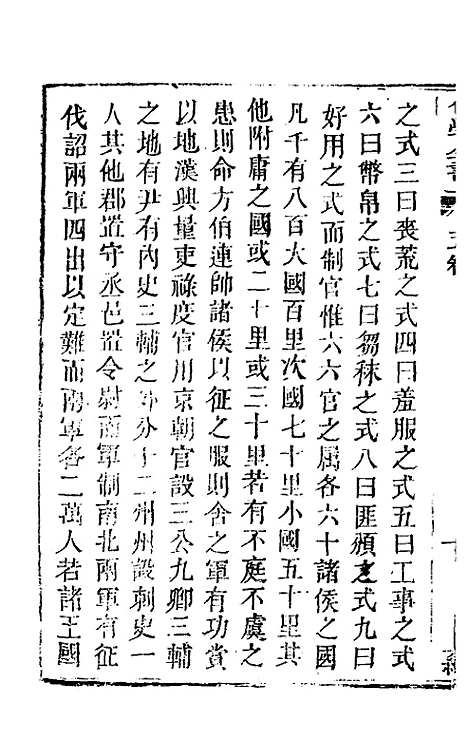 之式三曰喪荒之式四曰羞服之式五曰工事之式
六曰幣帛之式七曰芻秣之式八曰匪頒之式九曰
好用之式而制官惟六六官之屬各六十諸侯之國
凡千有八百大國百里次國七十里小國五十里其
他附庸之國或二十里或三十里若有不庭不虞之
患則命方伯連帥諸侯以征之服則舍之軍有功賞
以地漢興量吏祿度官用京朝官設三公九卿三輔
之地有尹有內史三輔之外分十二州州設刺史一
人其他郡置守丞邑置令尉而軍制南北兩軍有征
伐詔兩軍四出以定難而兩軍各二萬人若諸王國